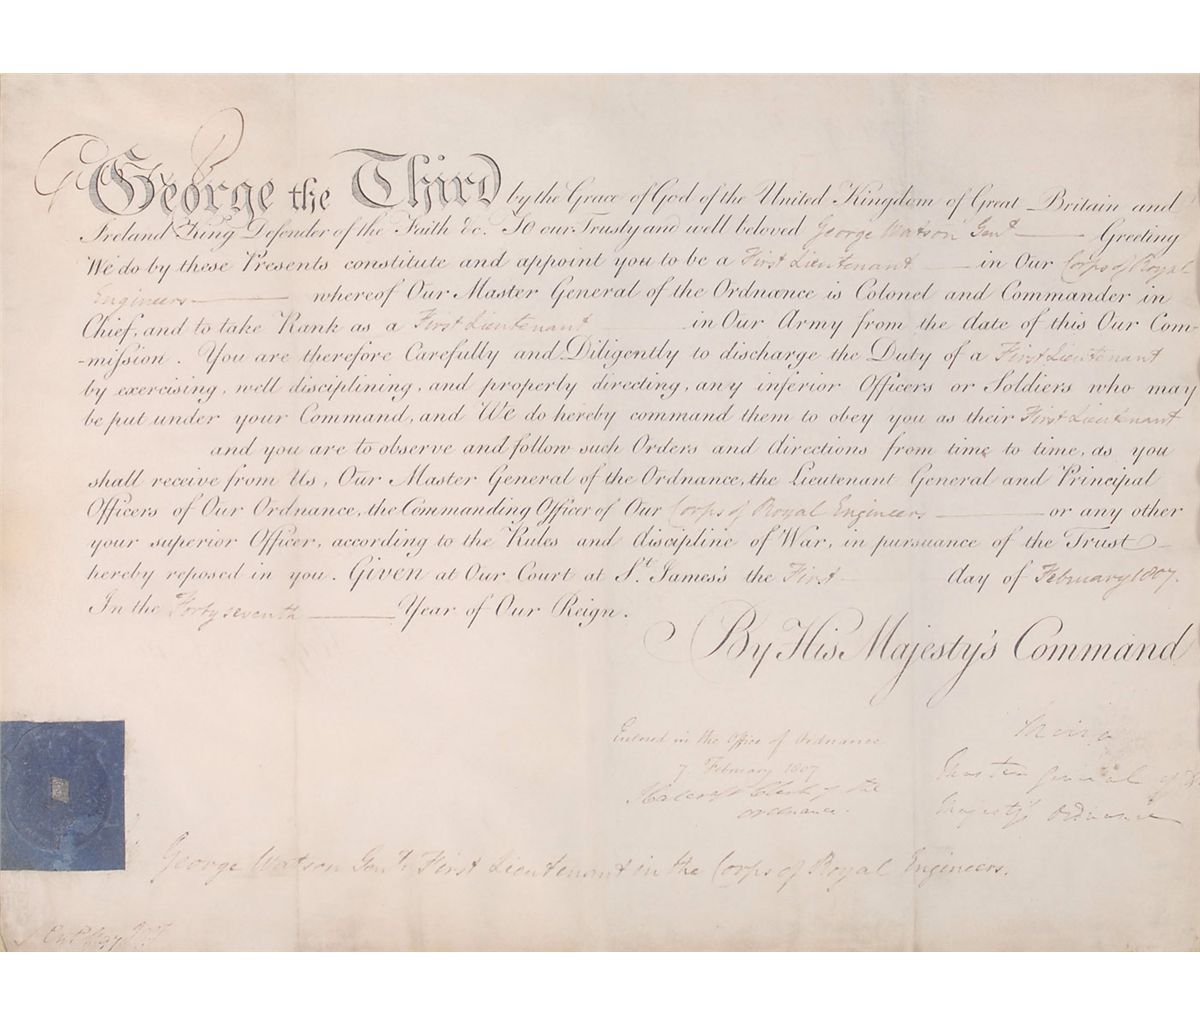 George the Third by the Grace of God of the United Kingdom of Great Britain and
Ireland King Defender of the Faith &c. To our Trusty and well beloved George Watson Gent Greeting
We do by these Presents constitute and appoint you to be a First Lieutenant in Our Corps of Royal
Engineers whereof Our Master General of the Ordnance is Colonel and Commander in
Chief, and to take Rank as a First Lieutenant in Our Army from the date of this Our Com-
-mission. You are therefore Carefully and Diligently to discharge the Duty of a First Lieutenant
by exercising, well disciplining, and properly directing, any inferior Officers or Soldiers who may
be put under your Command, and We do hereby command them to obey you as their First Lieutenant
and you are to observe and follow such Orders and directions from time to time, as you
shall receive from Us, Our Master General of the Ordnance, the Lieutenant General and Principal
Officers of Our Ordnance, the Commanding Officer of Our Corps of Royal Engineers or any other
your superior Officer, according to the Rules and discipline of War, in pursuance of the Trust
hereby reposed in you. Given at Our Court at St. James's the First day of February 1807.
In the Forty seventh Year of Our Reign.
By His Majesty's Command
Entered in the Office of Ordnance
7 February 1807
Clerk of the
Ordnance.
Master General of
Majesty's Ordnance
George Watson Gent. First Lieutenant in the Corps of Royal Engineers.